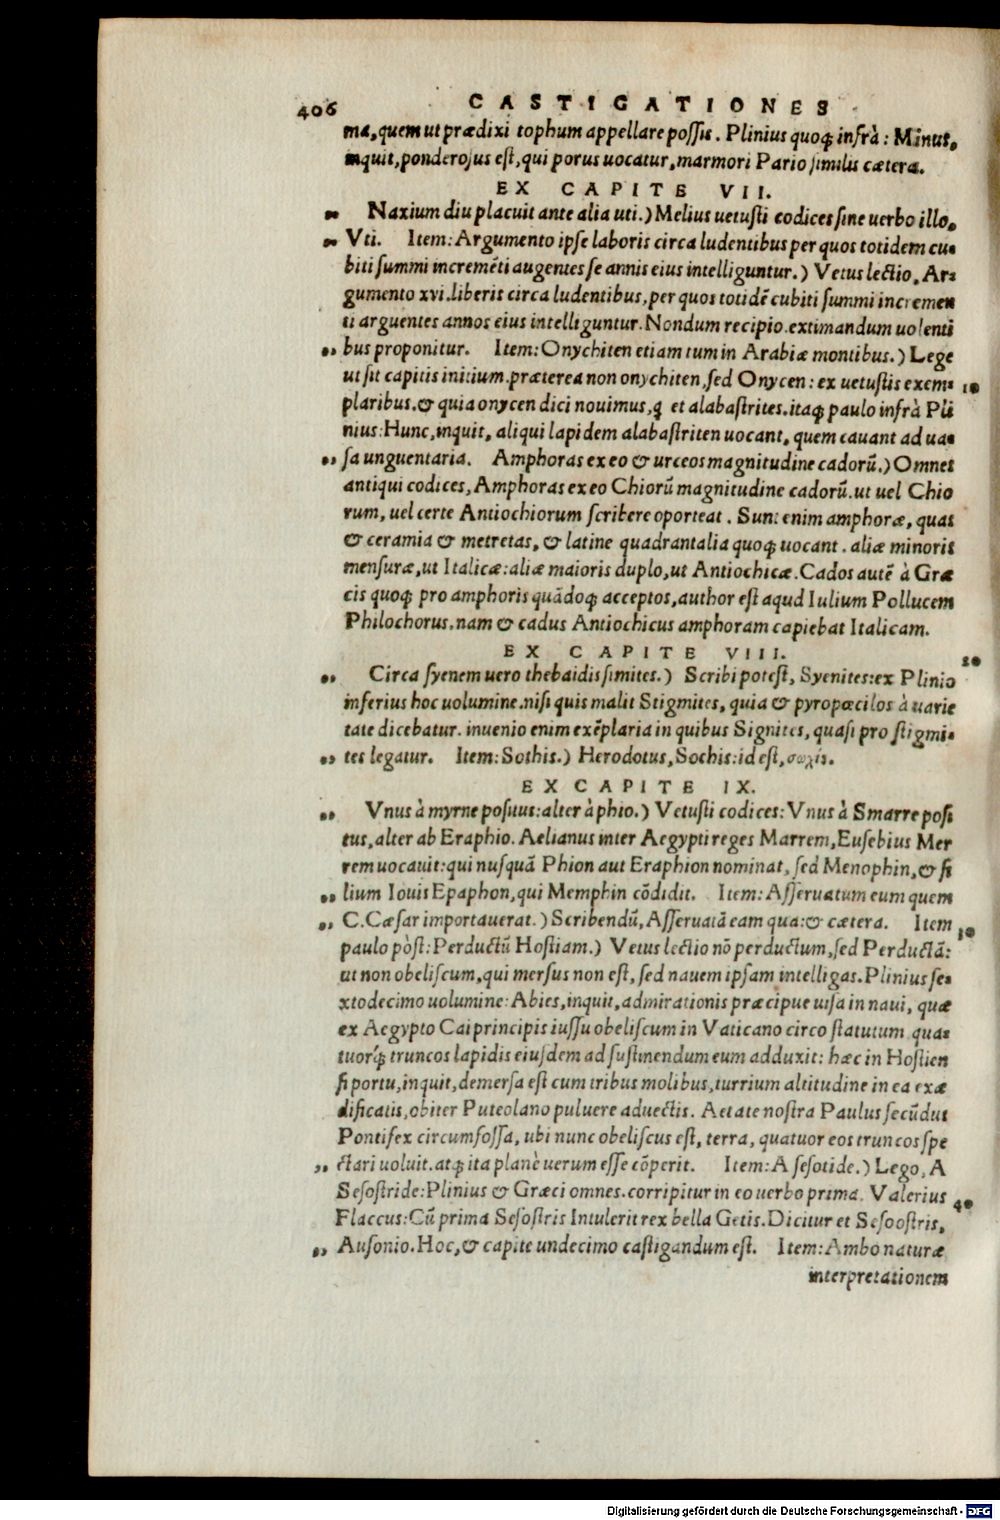 406 CASTIGATIONES
ma, quem ut prædixi tophum appellare possis. Plinius quoq; infrà: Minus,
inquit, ponderosus est, qui porus uocatur, marmori Pario similis cætera.
EX CAPITE VII.
„ Naxium diu placuit ante alia uti.) Melius uetusti codices sine uerbo illo,
„ Vti. Item: Argumento ipse laboris circa ludentibus per quos totidem cu-
biti summi incremēti augentes se annis eius intelliguntur.) Vetus lectio, Ar-
gumento xvi.liberis circa ludentibus, per quos totidē cubiti summi incremen
ti arguentes annos eius intelliguntur. Nondum recipio.extimandum uolenti
„ bus proponitur. Item: Onychiten etiam tum in Arabiæ montibus.) Lege
ut sit capitis initium. præterea non onychiten, sed Onycen: ex uetustis exem- 10
plaribus. & quia onycen dici nouimus, q et alabastrites. itaq; paulo infrà Pli
nius: Hunc, inquit, aliqui lapidem alabastriten uocant, quem cauant ad ua-
„ sa unguentaria. Amphoras ex eo & urceos magnitudine cadorū.) Omnes
antiqui codices, Amphoras ex eo Chiorū magnitudine cadorū. ut uel Chio
rum, uel certe Antiochiorum scribere oporteat. Sunt enim amphoræ, quas
& ceramia & metretas, & latine quadrantalia quoq; uocant. aliæ minoris
mensuræ, ut Italicæ: aliæ maioris duplo, ut Antiochicæ. Cados autē à Græ
cis quoq; pro amphoris quādoq; acceptos, author est aqud Iulium Pollucem
Philochorus. nam & cadus Antiochicus amphoram capiebat Italicam.
EX CAPITE VIII. 20
„ Circa syenem uero thebaidis simites.) Scribi potest, Syenites: ex Plinio
inferius hoc uolumine. nisi quis malit Stigmites, quia & pyropœcilos à uarie
tate dicebatur. inuenio enim exēplaria in quibus Signites, quasi pro stigmi-
„ tes legatur. Item: Sothis.) Herodotus, Sochis: id est, σωχίς.
EX CAPITE IX.
„ Vnus à myrne positus: alter à phio.) Vetusti codices: Vnus à Smarre posi
tus, alter ab Eraphio. Aelianus inter Aegypti reges Marrem, Eusebius Mer
rem uocauit: qui nusquā Phion aut Eraphion nominat, sed Menophin, & fi
„ lium Iouis Epaphon, qui Memphin cōdidit. Item: Asseruatum eum quem
„ C. Cæsar importauerat.) Scribendū, Asseruatā eam qua: & cætera. Item 30
paulo pòst: Perductū Hostiam.) Vetus lectio nō perductum, sed Perductā:
ut non obeliscum, qui mersus non est, sed nauem ipsam intelligas. Plinius se-
xtodecimo uolumine: Abies, inquit, admirationis præcipue uisa in naui, quæ
ex Aegypto Cai principis iussu obeliscum in Vaticano circo statutum qua-
tuorq́; truncos lapidis eiusdem ad sustinendum eum adduxit: hæc in Hostien
si portu, inquit, demersa est cum tribus molibus, turrium altitudine in ea exæ
dificatis, obiter Puteolano puluere aduectis. Aetate nostra Paulus secūdus
Pontifex circumfossa, ubi nunc obeliscus est, terra, quatuor eos truncos spe
„ ctari uoluit. atq; ita planè uerum esse cōperit. Item: A sesotide.) Lego, A
Sesostride: Plinius & Græci omnes. corripitur in eo uerbo prima. Valerius 40
Flaccus: Cū prima Sesostris Intulerit rex bella Getis. Dicitur et Sesoostris,
„ Ausonio. Hoc, & capite undecimo castigandum est. Item: Ambo naturæ
interpretationem
Digitalisierung gefördert durch die Deutsche Forschungsgemeinschaft - DFG